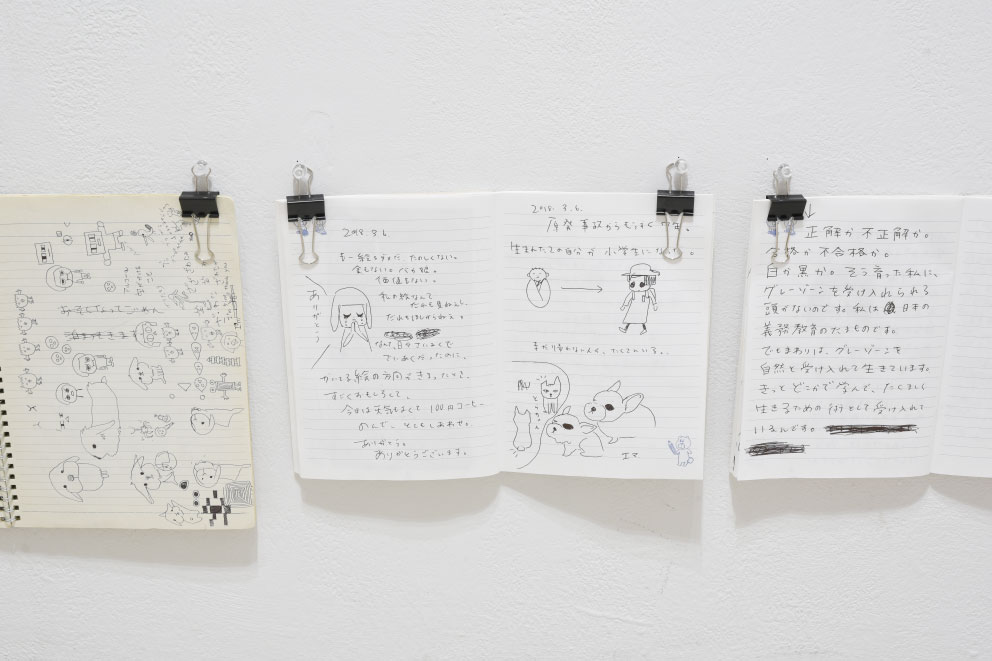 2018.3.6.
たのしくない。
金もない。
価値もない。
私の絵なんて
だれも見ねぇし、
だれもほしがらねぇ。
なんて、日々さいあくで
さいあくだったのに、
ありがとう
かいてる絵の方向がきまったとき、
すごくおもしろくて、
今日は天気もよくて 100円コーヒー
のんで、とてもしあわせ。
ありがとう。
ありがとうございます。
2018.3.6.
原発事故からもうすぐ 7年。
生まれたての自分が 小学生にな
まだ帰れない人が、たくさんいる。
エマ
正解か不正解か。
合格か不合格か。
白か黒か。そう育った私に、
グレーゾーンを受け入れられる
頭がないのです。私は 日本の
義務教育のたまものです。
でもまわりは、グレーゾーンを
自然と受け入れて生きています。
きっとどこかで学んで、たくましく
生きるための術として受け入れて
いるんです。